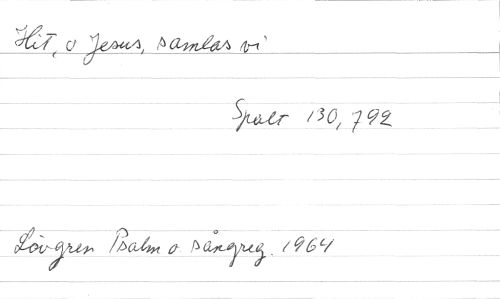 Hit, o Jesus, samlas vi
Spalt 130, 792
Lövgren Psalm o sångreg. 1964